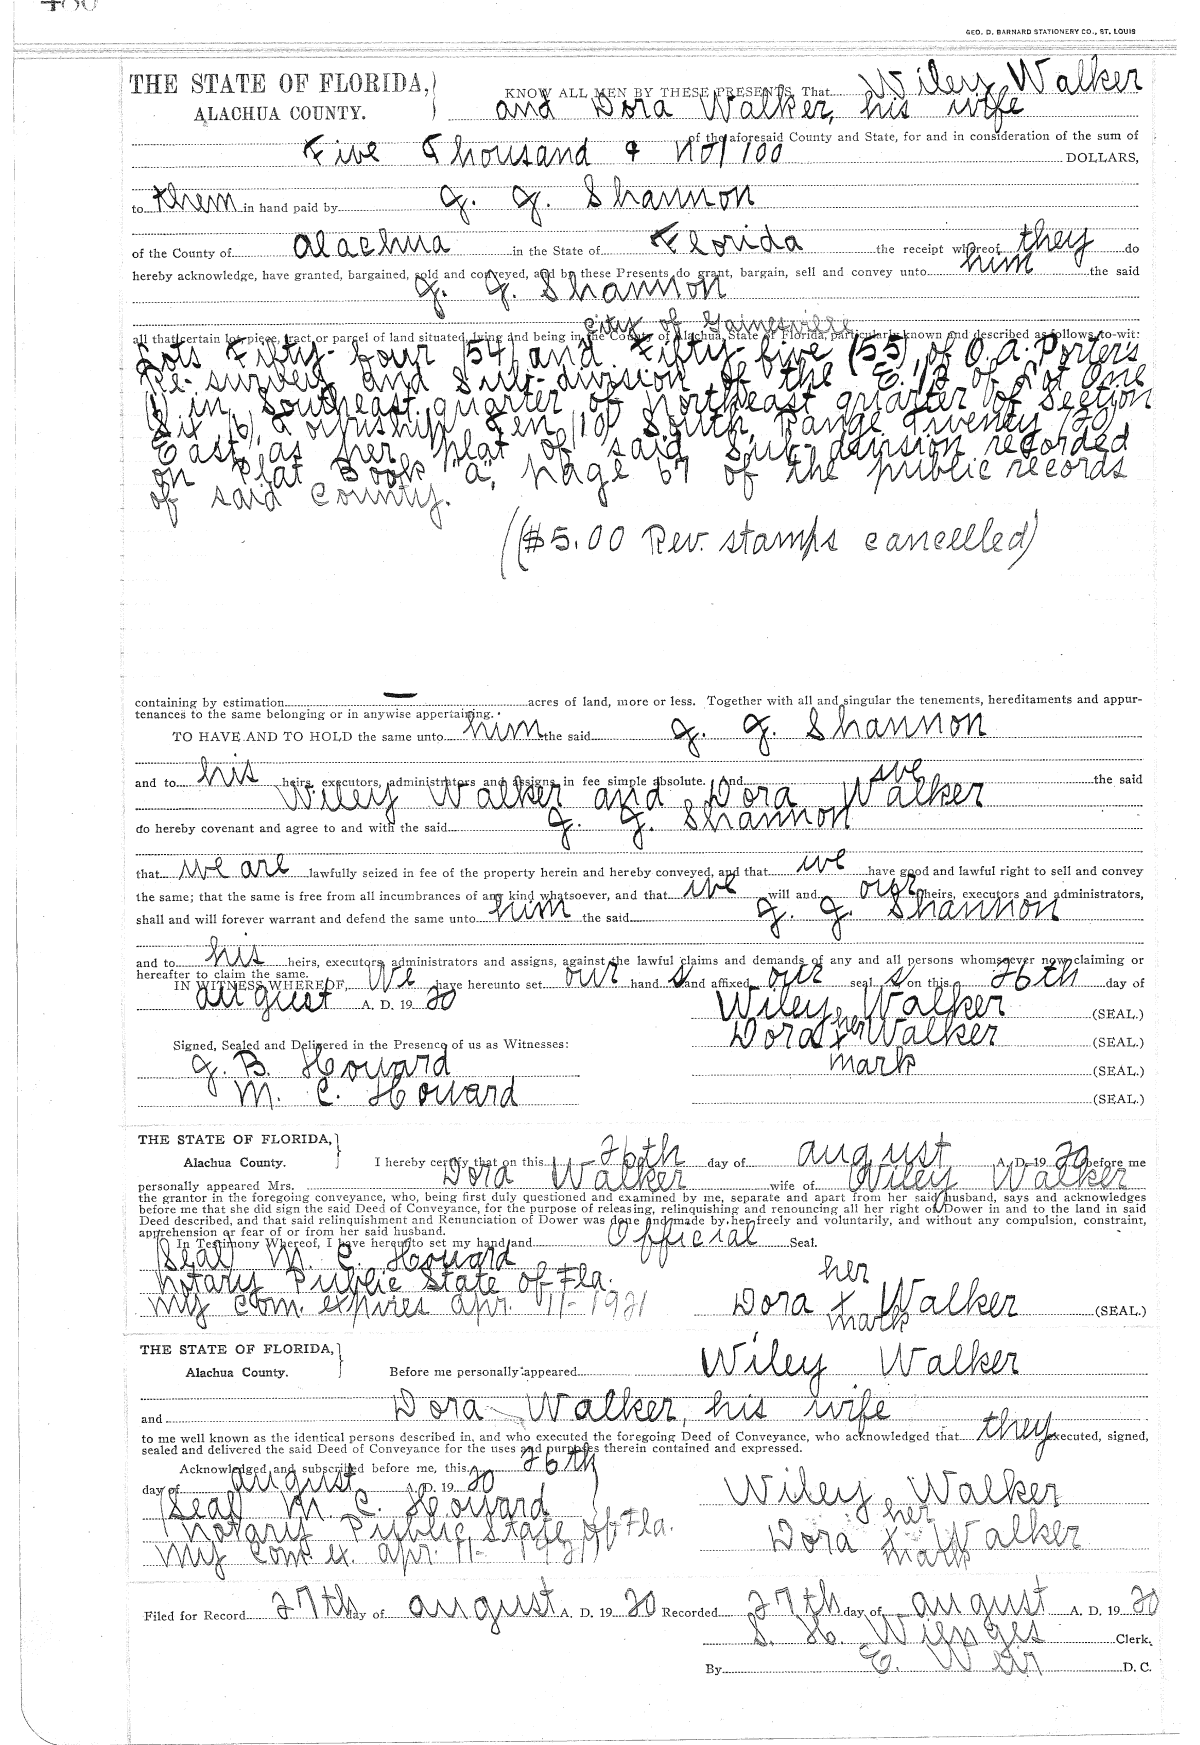 GEO. D. BARNARD STATIONERY CO., ST. LOUIS
THE STATE OF FLORIDA,
ALACHUA COUNTY.
KNOW ALL MEN BY THESE PRESENTS, That Wiley Walker
and Dora Walker, his wife
of the aforesaid County and State, for and in consideration of the sum of
Five Thousand & no/100 DOLLARS,
to them in hand paid by J. J. Shannon
of the County of Alachua in the State of Florida the receipt whereof they do
hereby acknowledge, have granted, bargained, sold and conveyed, and by these Presents do grant, bargain, sell and convey unto him the said
J. J. Shannon
City of Gainesville
all that certain lot, piece, tract or parcel of land situated, lying and being in the County of Alachua, State of Florida, particularly known and described as follows, to-wit:
Lots Fifty-four (54) and Fifty-five (55), of O. A. Porter's
Re-survey and Sub-division of the E. 1/2 of Lot One
(1) in Southeast quarter of Northeast quarter of Section
Six (6), Township Ten (10) South, Range Twenty (20)
East, as per plat of said Sub-division recorded
on Plat Book "A", page 67 of the public records
of said County.
(($5.00 Rev. stamps cancelled)
containing by estimation — acres of land, more or less. Together with all and singular the tenements, hereditaments and appur-
tenances to the same belonging or in anywise appertaining.
TO HAVE AND TO HOLD the same unto him the said J. J. Shannon
and to his heirs, executors, administrators and assigns, in fee simple absolute. And we the said
Wiley Walker and Dora Walker
do hereby covenant and agree to and with the said J. J. Shannon
that we are lawfully seized in fee of the property herein and hereby conveyed, and that we have good and lawful right to sell and convey
the same; that the same is free from all incumbrances of any kind whatsoever, and that we will and our heirs, executors and administrators,
shall and will forever warrant and defend the same unto him the said J. J. Shannon
and to his heirs, executors, administrators and assigns, against the lawful claims and demands of any and all persons whomsoever now claiming or
hereafter to claim the same.
IN WITNESS WHEREOF, We have hereunto set our hand s and affixed our seal s on this 26th day of
August A. D. 19 20
Wiley Walker (SEAL.)
Dora x her Walker (SEAL.)
Signed, Sealed and Delivered in the Presence of us as Witnesses:
J. B. Howard mark (SEAL.)
M. C. Howard (SEAL.)
THE STATE OF FLORIDA,
Alachua County.
I hereby certify that on this 26th day of August A. D. 19 20 before me
personally appeared Mrs. Dora Walker wife of Wiley Walker
the grantor in the foregoing conveyance, who, being first duly questioned and examined by me, separate and apart from her said husband, says and acknowledges
before me that she did sign the said Deed of Conveyance, for the purpose of releasing, relinquishing and renouncing all her right of Dower in and to the land in said
Deed described, and that said relinquishment and Renunciation of Dower was done and made by her freely and voluntarily, and without any compulsion, constraint,
apprehension or fear of or from her said husband.
In Testimony Whereof, I have hereunto set my hand and Official Seal.
Seal M. C. Howard
Notary Public State of Fla. her
My Com. expires Apr. 11-1921 Dora x Walker (SEAL.)
mark
THE STATE OF FLORIDA,
Alachua County.
Before me personally appeared Wiley Walker
and Dora Walker, his wife
to me well known as the identical persons described in, and who executed the foregoing Deed of Conveyance, who acknowledged that they executed, signed,
sealed and delivered the said Deed of Conveyance for the uses and purposes therein contained and expressed.
Acknowledged and subscribed before me, this 26th
day of August A. D. 19 20
(Seal M. C. Howard Wiley Walker
Notary Public State of Fla. her
My Com. ex. Apr. 11-1921) Dora x Walker
mark
Filed for Record 27th day of August A. D. 19 20 Recorded 27th day of August A. D. 19 20
S. H. Wienges Clerk.
By E. Weir D. C.